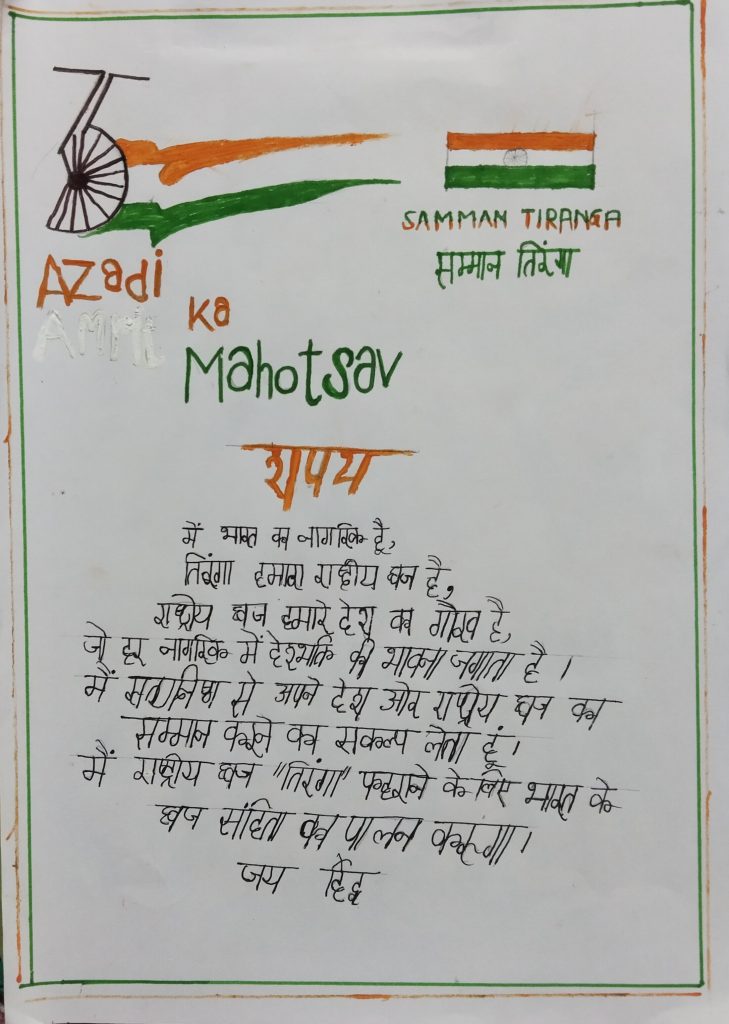 75
SAMMAN TIRANGA
सम्मान तिरंगा
Azadi
AMRIt
Ka
Mahotsav
शपथ
में भारत का नागरिक हूँ,
तिरंगा हमारा राष्ट्रीय ध्वज है,
राष्ट्रीय ध्वज हमारे देश का गौरव है,
जो हर नागरिक में देशभक्ति की भावना जगाता है।
मैं सत्यनिष्ठा से अपने देश और राष्ट्रीय ध्वज का
सम्मान करने का सकल्प लेता हूं।
मैं राष्ट्रीय ध्वज "तिरंगा" फहराने के लिए भारत के
ध्वज संहिता का पालन करूगा।
जय हिंद